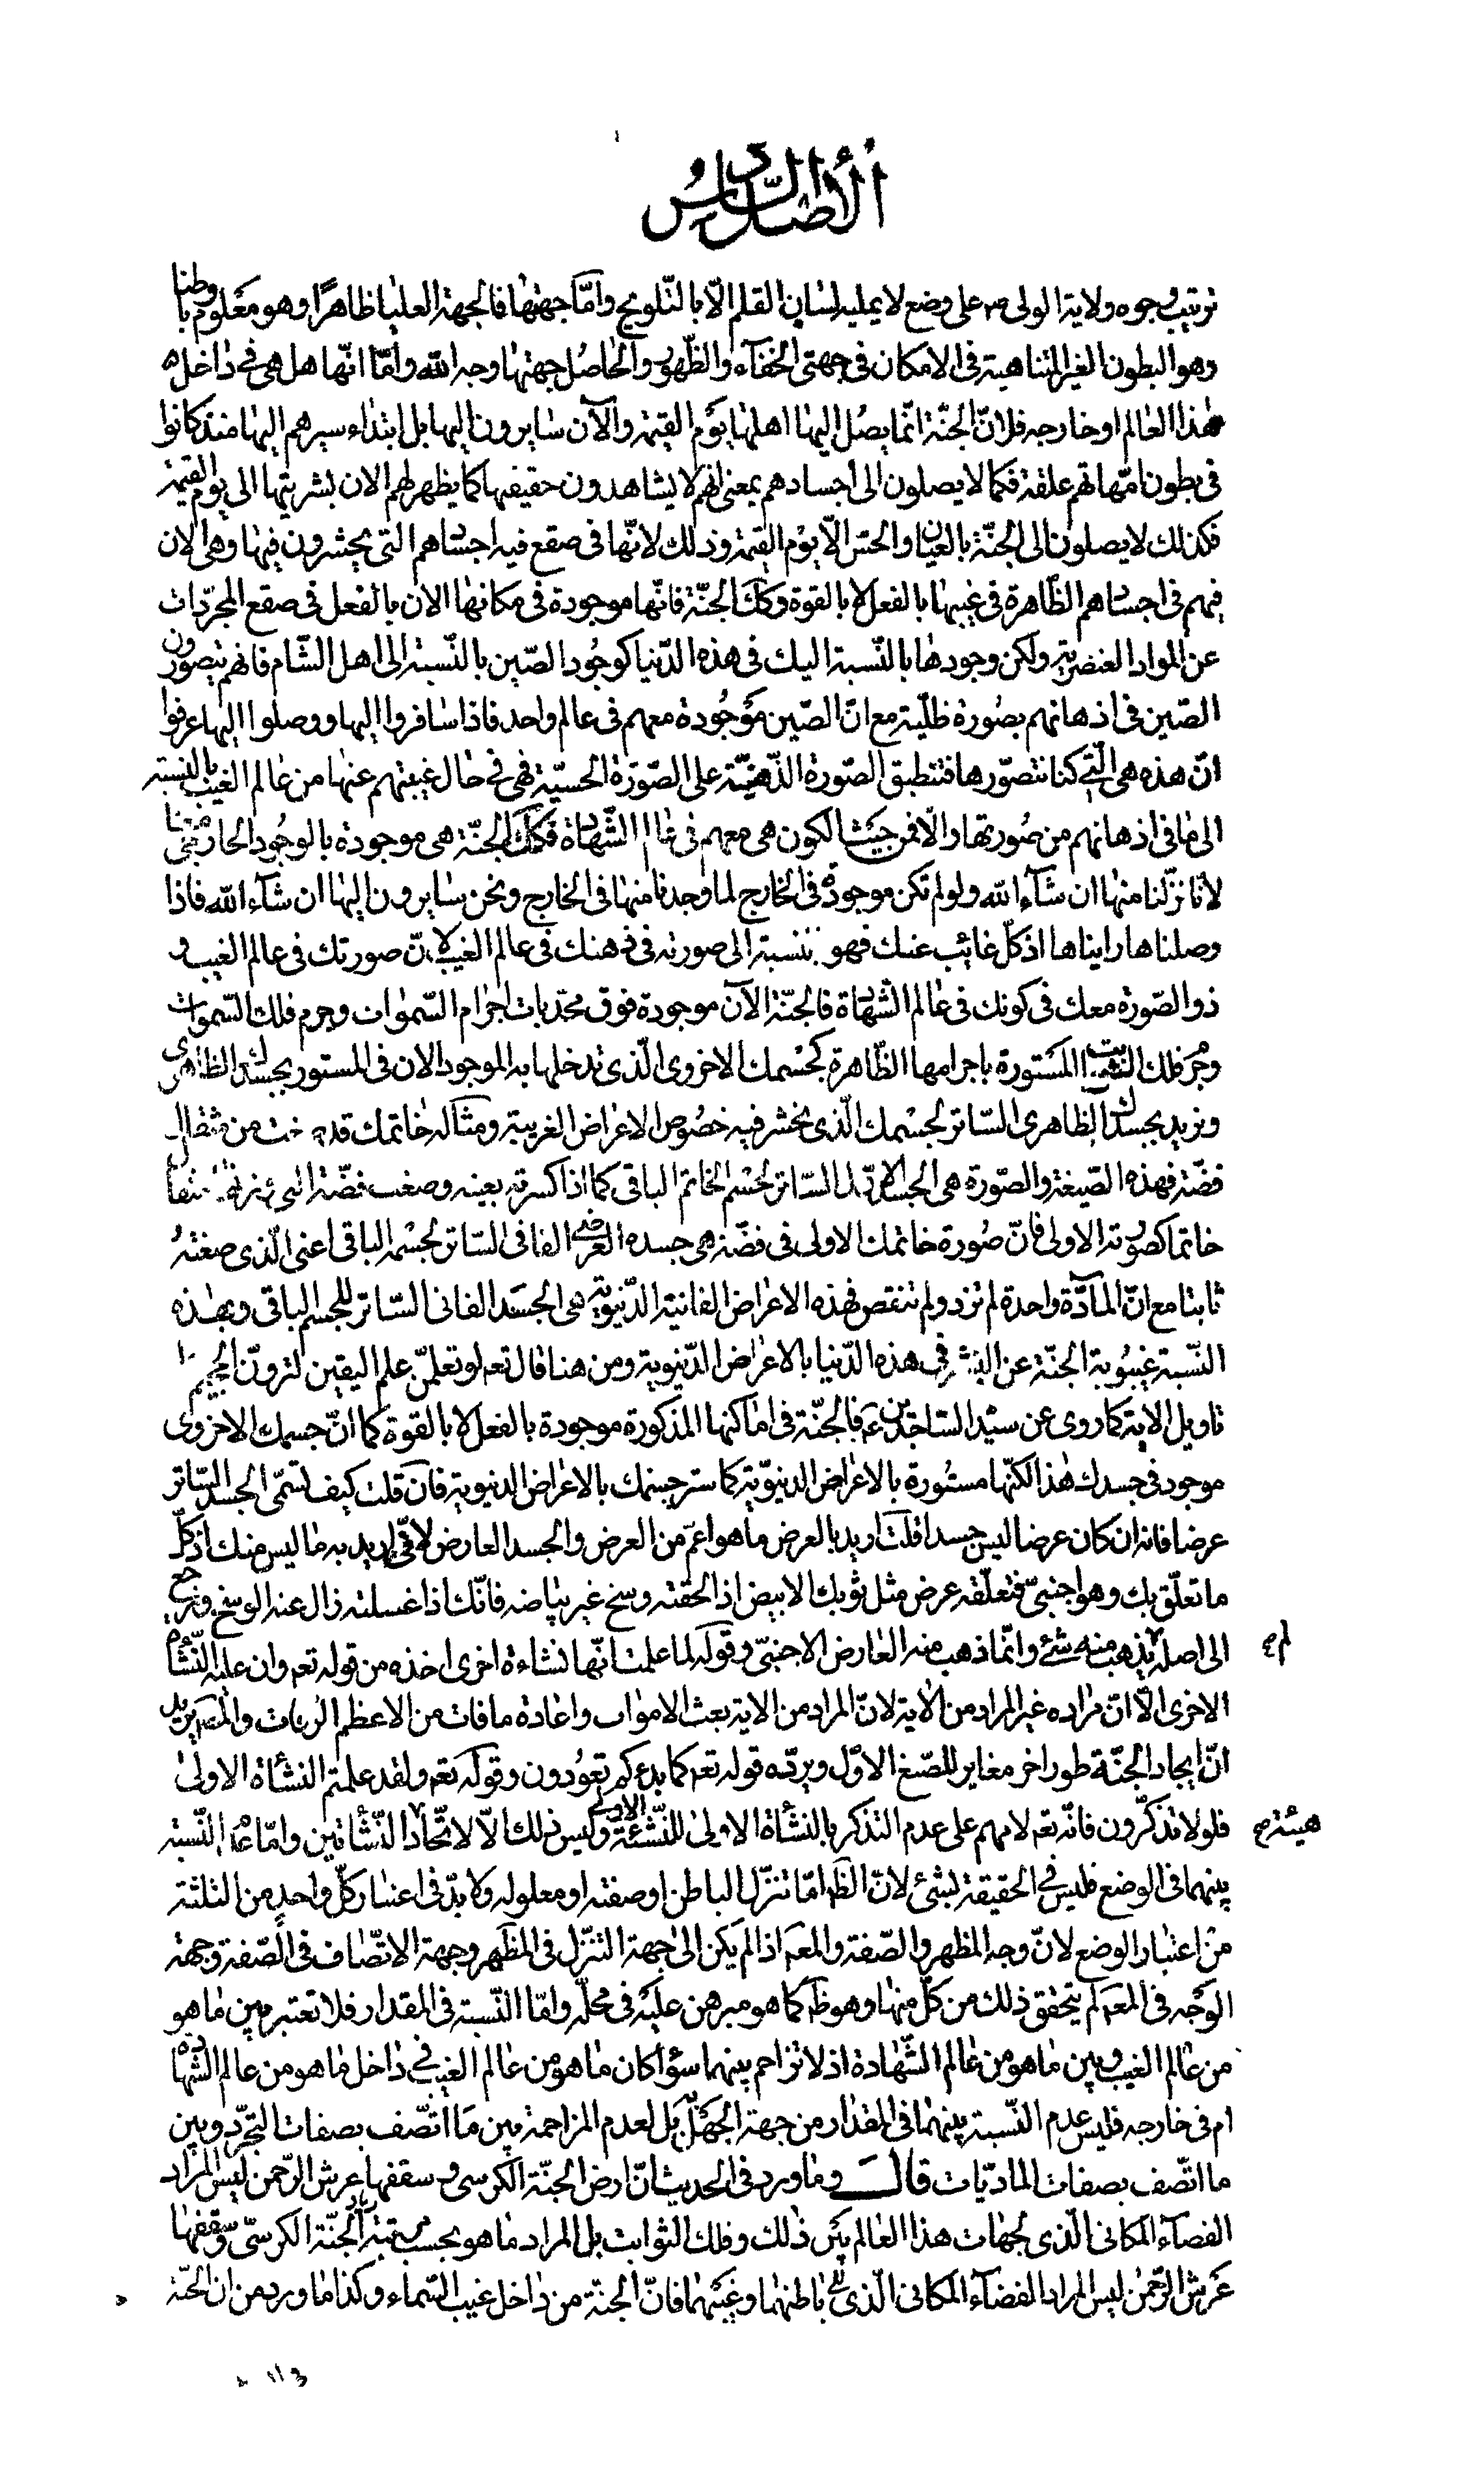 الأصل السادس
ترتيب وجوه ولاية الولى ع على وضع لا يمليه لسان القلم الّا بالتّلويح وامّا جهتها فالجهة العليا ظاهرًا وهو معلوم باطنا
وهو البطون الغير المتناهية فى الامكان فى جهتى الخفآء والظّهور والحاصل جهتها وجه الله وامّا انّها هل هى فى داخل
هذا العالم او خارجه فلانّ الجنّة انّما يصل اليها اهلها يوم القيمة والآن سايرون اليها بل ابتداء سيرهم اليها منذ كانوا
فى بطون امّهاتهم علقة فكما لا يصلون الى أجسادهم بمعنى انهم لا يشاهدون حقيقتها كما يظهر لهم الان بشريتها الى يوم القيمة
فكذلك لا يصلون الى الجنّة بالعيان والحسّ الّا يوم القيمة وذلك لانّها فى صقع فيه اجسامهم التى يحشرون فيها وهى الان
فيهم فى اجسادهم الظّاهرة فى غيبها بالفعل لا بالقوة وكك الجنّة فانّها موجودة فى مكانها الان بالفعل فى صقع المجرّدات
عن المواد العنصرية ولكن وجودها بالنّسبة اليك فى هذه الدّنيا كوجود الصّين بالنّسبة الى اهل الشّام فانهم يتصورون
الصّين فى اذهانهم بصورة ظلّية مع انّ الصّين موجودة معهم فى عالم واحد فاذا سافروا اليها ووصلوا اليها عرفوا
انّ هذه هى الّتى كنا نتصوّرها فتنطبق الصّورة الذّهنيّة على الصّورة الحسيّة فهى فى حال غيبتهم عنها من عالم الغيب بالنسبة
الى ما فى اذهانهم من صورتها والّا فمن حيث الكون هى معهم فى عالم الشّهادة فكك الجنّة هى موجودة بالوجود الخارجى
لانّا نزّلنا منها ان شآء الله ولو لم تكن موجودة فى الخارج لما وجدنا منها فى الخارج ونحن سايرون اليها ان شآء الله فاذا
وصلناها رايناها اذ كلّ غائب عنك فهو بنسبة الى صورته فى ذهنك فى عالم الغيب لانّ صورتك فى عالم الغيب و
ذو الصّورة معك فى كونك فى عالم الشّهادة فالجنّة الآن موجودة فوق محدّبات اجرام السّموات وجرم فلك السّموات
وجرم فلك المستورة باجرامها الظّاهرة كجسمك الاخروى الّذى تدخلها به الموجود الان فى المستور بجسدك الظاهرى
ونريد بجسدك الظاهرى السّاتر لجسمك الّذى يحشر فيه خصوص الاعراض الغريبة ومثاله خاتمك من مثقال
فضّة فهذه الصّيغة والصّورة هى الجسد السّاتر لجسم الخاتم الباقى كما اذا كسرته بعينه وصغت فضّة
خاتما كصورته الاولى فانّ صورة خاتمك الاولى فى فضّته هى جسده العرضى الفانى السّاتر لجسمه الباقى اعنى الّذى صغته
ثابتا مع انّ المادّة واحدة لم تزد ولم تنقص فهذه الاعراض الفانية الدّنيوية هى الجسد الفانى السّاتر للجسم الباقى وبهذه
النّسبة غيبوبة الجنّة عن البشر فى هذه الدّنيا بالاعراض الدّنيوية ومن هنا قال تعم لو تعلمون علم اليقين لترونّ الجحيم
تاويل الاية كما روى عن سيّد السّاجدين ع فالجنّة فى اماكنها المذكورة موجودة بالفعل لا بالقوة كما انّ جسمك الاخروى
موجود فى جسدك هذا لكنّها مستورة بالاعراض الدنيويّة كما ستر جسمك بالاعراض الدنيوية فان قلت كيف تسمّى الجسد السّاتر
عرضا فانه ان كان عرضا ليس جسدا قلت اريد بالعرض ما هو اعمّ من العرض والجسد العارض لانّى اريد به ما ليس منك اذ كلّ
ما تعلّق بك وهو اجنبىّ فتعلّقه عرض مثل ثوبك الابيض اذا لحقته وسخ غير بياضه فانّك اذا غسلته زال عنه الوسخ ورجع
الى اصله لم يذهب منه شئ وانّما ذهب منه العارض الاجنبىّ وقوله لما علمت انّها نشاءة اخرى اخذه من قوله تعم وان عليه النّشاة
الاخرى الّا انّ مراده غير المراد من الاية لانّ المراد من الاية بعث الاموات واعادة ما فات من الاعظم والمصَ يريد
انّ ايجاد الجنّة طور اخر مغاير للصّنع الاوّل ويردّه قوله تعم كما بدءكم تعودون وقوله تعم ولقد علمتم النشأة الاولى
فلو لا تذكّرون فانّه تعم لامهم على عدم التذكر بالنشأة الاولى للنّشئة وليس ذلك الّا لاتّحاد النّشأتين وامّا عدم النّسبة
بينهما فى الوضع فليس فى الحقيقة بشئ لانّ الظّ امّا تنزّل الباطن او صفته او معلوله ولا بدّ فى اعتبار كلّ واحد من الثلثة
من اعتبار الوضع لانّ وجه المظهر والصّفة والمعَ اذا لم يكن الى جهة التنزّل فى المظهر وجهة الاتّصاف فى الصّفة وجهة
الوجه فى المعَ لم يتحقق ذلك من كلّ منها وهو ظَ كما هو مبرهن عليه فى محلّه وامّا النّسبة فى المقدار فلا تعتبر بين ما هو
من عالم الغيب وبين ما هو من عالم الشّهادة اذ لا تزاحم بينهما سواء كان ما هو من عالم الغيب فى داخل ما هو من عالم الشّهادة
ام فى خارجه فليس عدم النّسبة بينهما فى المقدار من جهة الجهة بل لعدم المزاحمة بين ما اتّصف بصفات التجرّد وبين
ما اتّصف بصفات المادّيّات قال وما ورد فى الحديث انّ ارض الجنّة الكرسى و سقفها عرش الرّحمن ليس المراد
الفضآء المكانى الّذى لجهات هذا العالم بين ذلك وفلك الثوابت بل المراد ما هو بحسب مرتبة الجنّة الكرسىّ وسقفها
عرش الرّحمن ليس المراد الفضآء المكانى الّذى باطنهما وغيبهما فانّ الجنّة من داخل غيب السّماء وكذا ما ورد من ان الجنّة
لم ع
هيئته ع